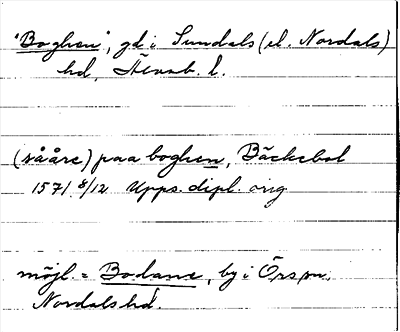 "Boghen", gd i Sundals (el. Nordals)
hd, Älvsb. l.
(sååre) paa boghen, Bäckebol
1571 8/12 Upps. dipl. orig
möjl. = Bodane, by i Örs sn,
Nordals hd.